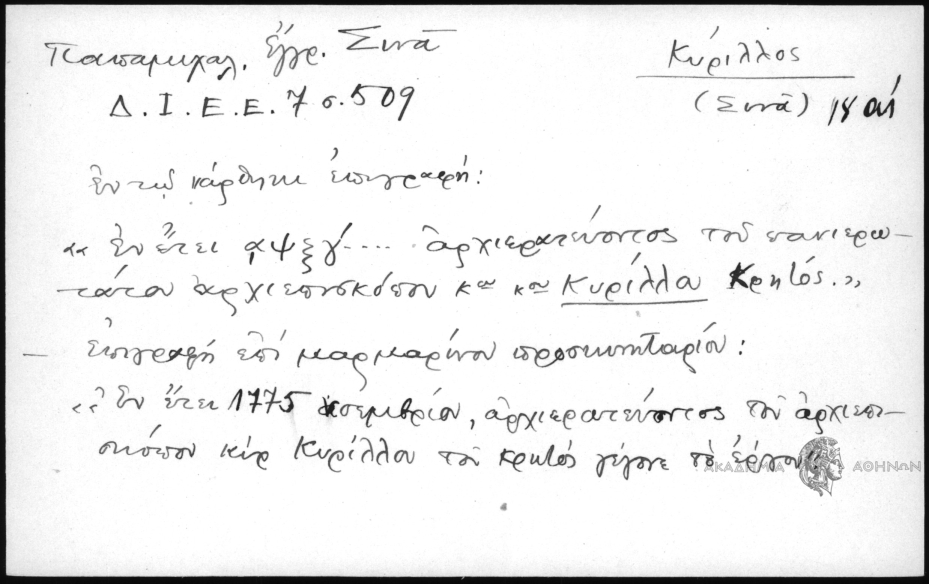 Παπαμιχαλ. Ἔγγρ. Σινᾶ
Δ.Ι.Ε.Ε. 7 σ. 509
Κύριλλος
(Σινᾶ) 18 αἰ
ἐν τῷ νάρθηκι ἐπιγραφή:
«Ἐν ἔτει ͵αψξγ´.... ἀρχιερατεύοντος τοῦ πανιερω-
τάτου ἀρχιεπισκόπου κου κου Κυρίλλου Κρητός.»
— ἐπιγραφή ἐπί μαρμαρίνου προσκυνηταρίου:
«Ἐν ἔτει 1775 νοεμβρίου, ἀρχιερατεύοντος τοῦ ἀρχιεπι-
σκόπου κύρ Κυρίλλου τοῦ κρητός γέγονε τό ἔργον»
ΑΚΑΔΗΜΙΑ ΑΘΗΝΩΝ